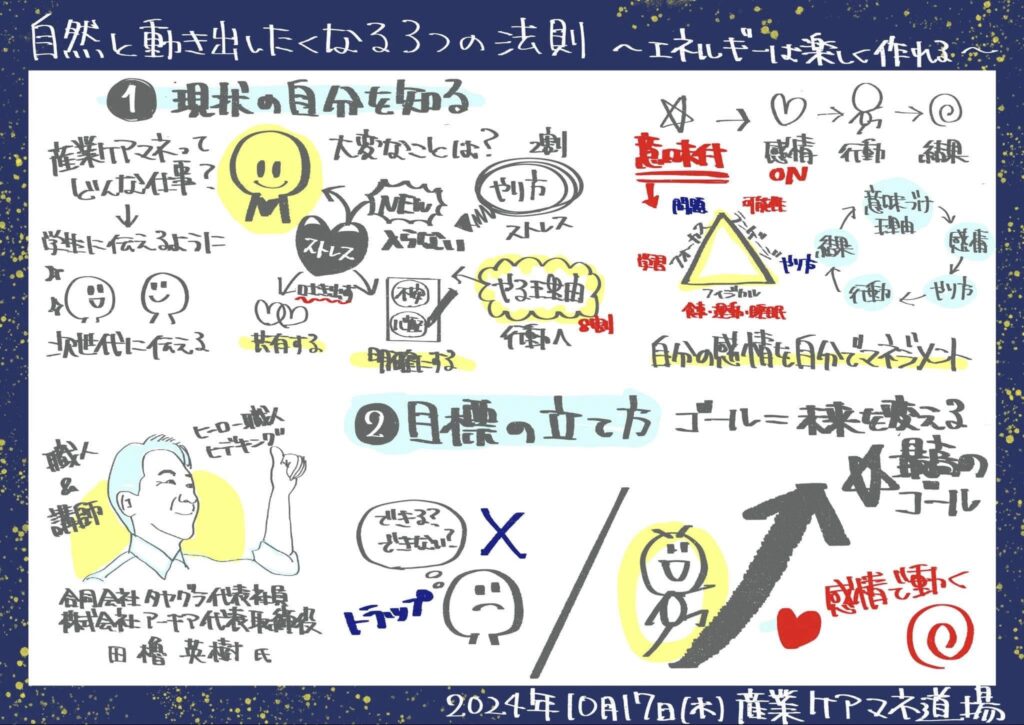 自然と動き出したくなる3つの法則 ～エネルギーは楽しく作れる～
1 現状の自分を知る
産業ケアマネって
どんな仕事?
↓
学生に伝えるように
次世代に伝える
大変なことは?
2割
やり方
ストレス
NEW
入らない
ストレス
吐き出す
共有する
不安
心配
明確にする
やる理由
行動へ 8割
☆→♡→ →
意味付 感情 行動 結果
ON
問題 可能性
フォーカス
ランゲージ
学習 やり方
フィジカル
食事・運動・睡眠
意味づけ
理由
感情
やり方
行動
結果
自分の感情を自分でマネジメント
職人
&
講師
ヒーロー職人
ヒデキング
合同会社タヤグラ代表社員
株式会社アーキア代表取締役
田櫓 英樹 氏
2 目標の立て方 ゴール=未来を変える
できる?
できない?
X
トラップ
最高の
ゴール
感情で動く
2024年10月17日(木) 産業ケアマネ道場